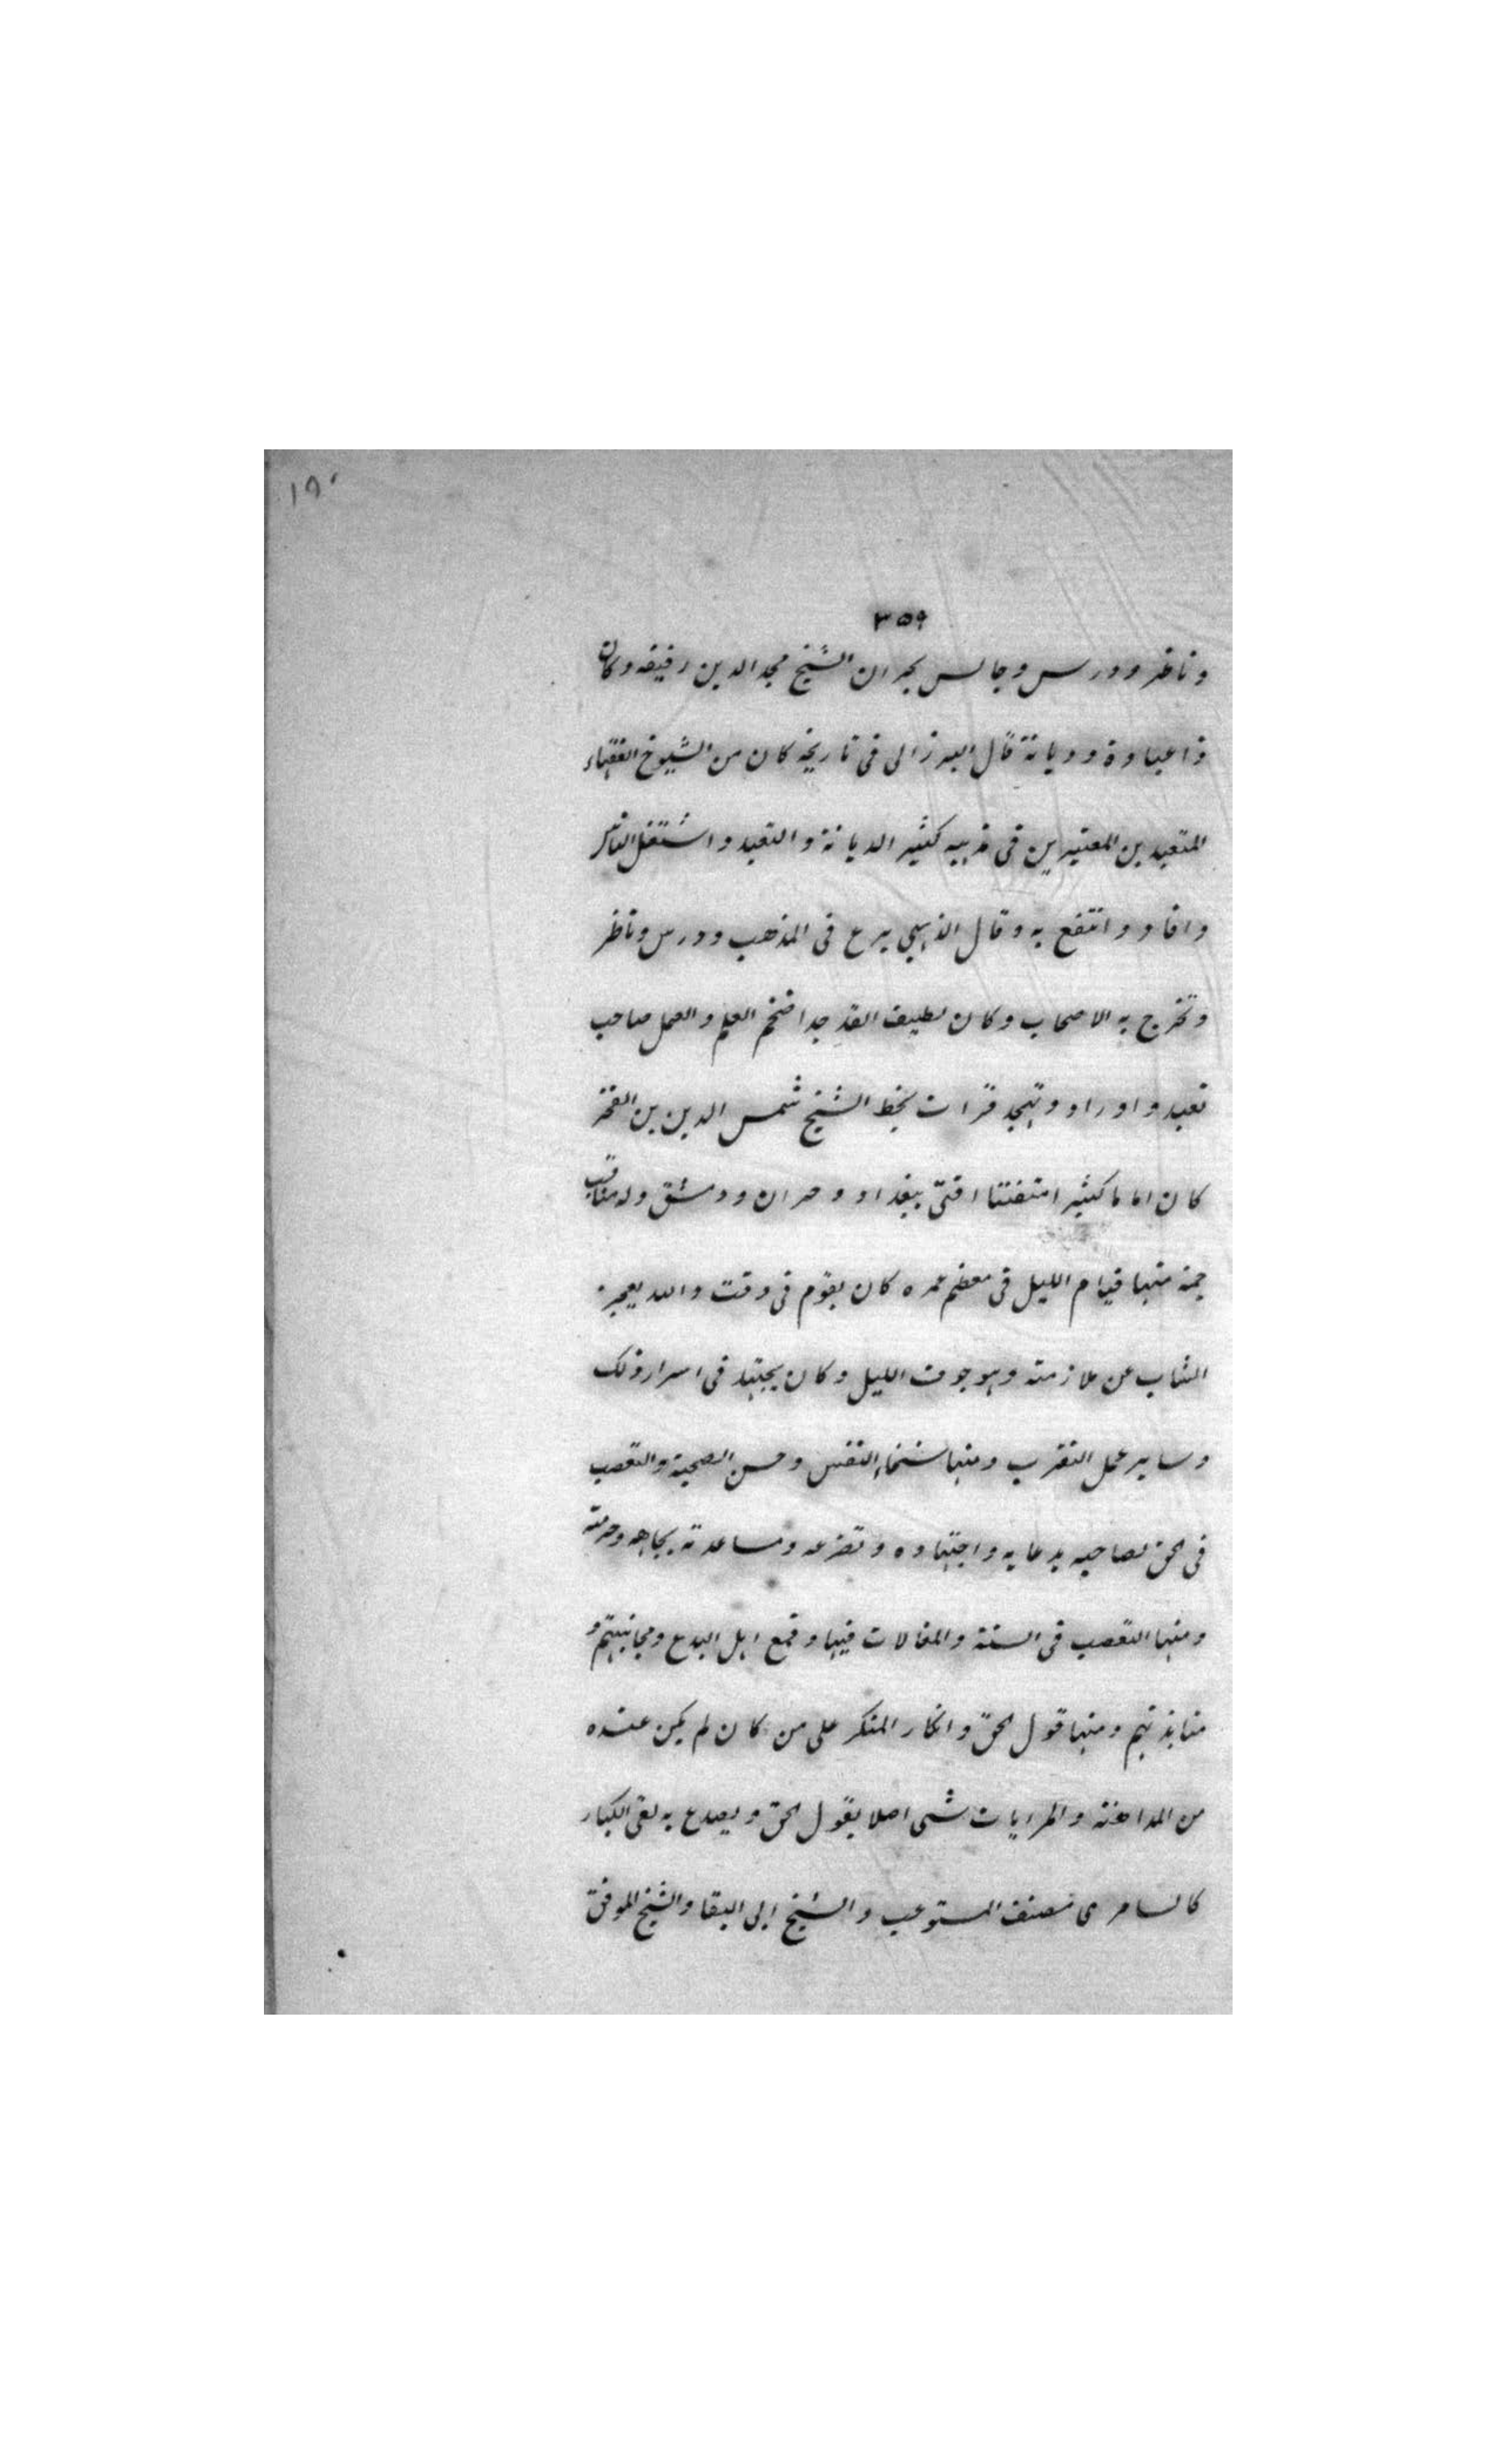 ١٨٠
٣٥٩
وناظر ودرس وجالس بحران الشيخ مجد الدين رفيقه وكان
ذا عبادة وديانة قال البرزالى فى تاريخه كان من الشيوخ الفقهاء
المتعبدين المعتبرين فى مذهبه كثير الديانة والتعبد واشتغل الناس
وافاد وانتفع به وقال الذهبي برع فى المذهب ودرس وناظر
وتخرج به الاصحاب وكان لطيف القد جدا ضخم العلم والعمل صاحب
تعبد واوراد وتهجد قرات بخط الشيخ شمس الدين بن الفخر
كان اماما كثير امتفننا افتى ببغداد وحران ودمشق وله مناقب
جمة منها قيام الليل فى معظم عمره كان يقوم فى وقت والله يعجز
الشاب عن ملازمته وهو جوف الليل وكان يجتهد فى اسرار ذلك
وساير عمل التقرب ومنها سخاء النفس وحسن الصحبة والتعصب
فى حق صاحبه بدعايه واجتهاده وتضرعه ومساعدته بجاهه وحرمته
ومنها التعصب فى السنة والمغالات فيها وقمع اهل البدع ومجانبتهم و
منابذتهم ومنها قول الحق وانكار المنكر على من كان لم يكن عنده
من المداهنة والمرايات شى اصلا يقول الحق ويصدع به لقى الكبار
كالسامرى مصنف المستوعب والشيخ ابى البقا والشيخ الموفق